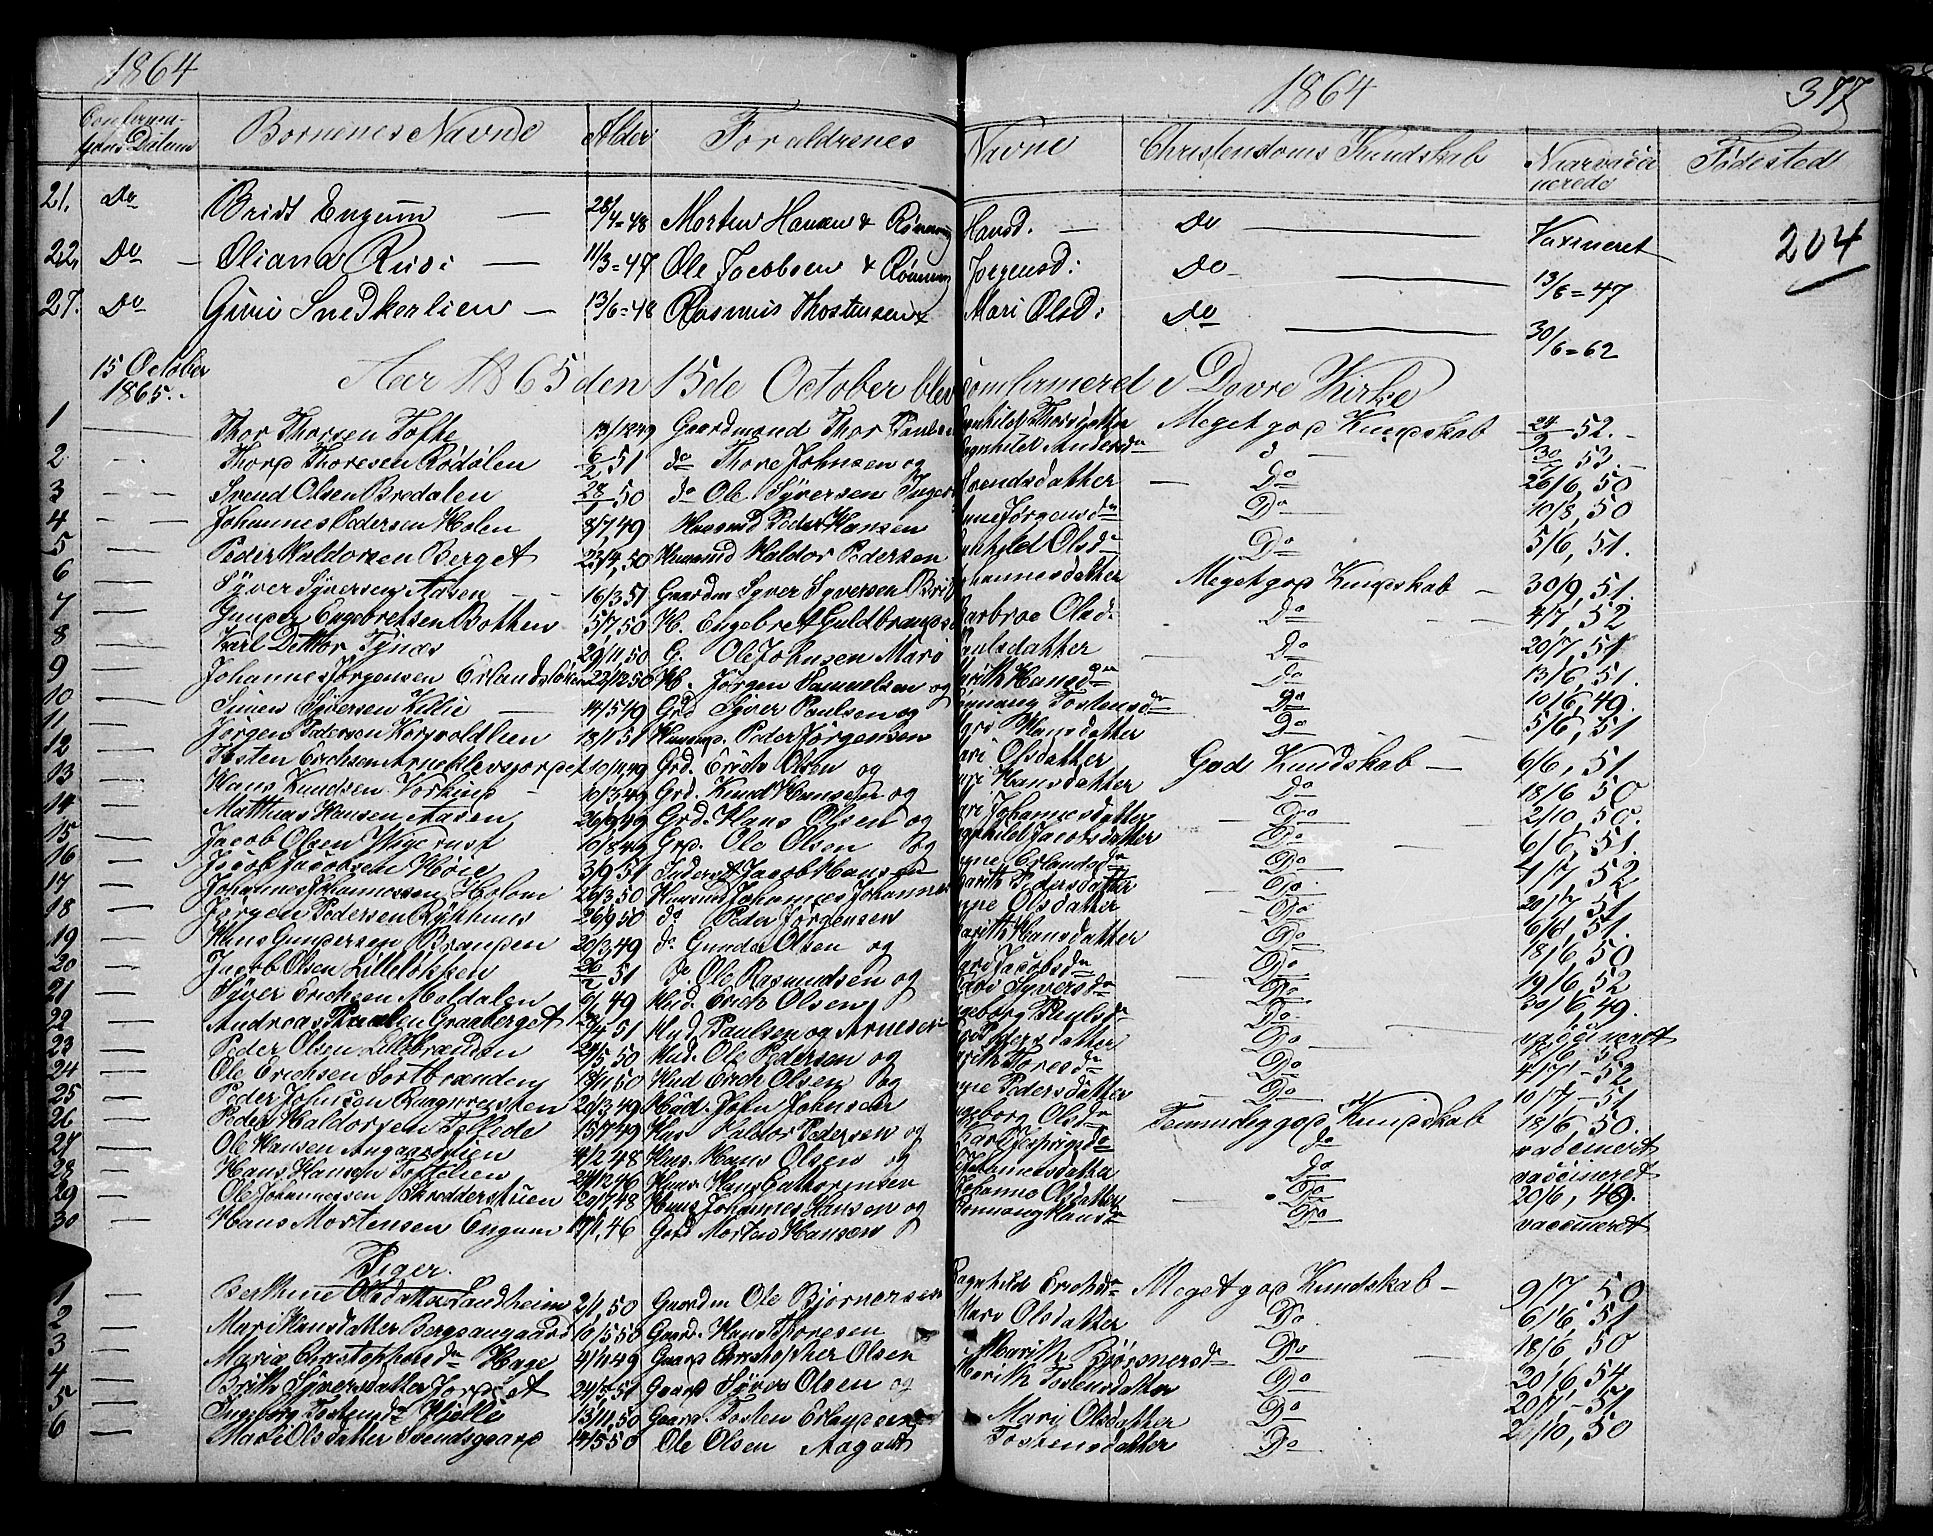 1864 1864 377
Confirmationens Datum Børnenes Navne Alder Forældrenes Navne Christendoms Kundskab Naar vaccinerede Fødested
21. Do Bridt Engum — 28/4=48 Morten Hansen & Rønnaug Hansd. — Do — Vaxineret 204
22. Do — Oliana Rusi — 11/3=47 Ole Jacobsen & Rønnaug Jørgensd: Do — 13/6=47
27. Do Guri Snedkerlien — 13/6=48 Rasmus Thostensen & Mari Olsd: Do — 30/6=62
15 October 1865. Aar 1865 den 15de October blev Confirmeret i Dovre Kirke
1 — Thor Thorsen Tofte Gaardmand Thor Paulsen Ragnhild Thorsdatter Meget god Kundskab 24/9 52.
2 — Thord Thoresen Rødølen 6/2 51 do Thore Johnsen og Ragnhild Andersdr — 30/7 53
3 — Svend Olsen Bredalen 50 do Ole Syversen Inge Svendsdatter — Do 26/6, 50
4 — Johannes Pedersen Holen 8/7, 49 Huusmd Peder Hansen Anne Jørgensdr Do 10/8, 50
5 — Peder Haldorsen Berget 23/4, 50 Huusmd Haldor Pedersen Olsdr Do 5/6, 51.
6 — Syver Syversen Aasen 16/3 51 Gaardm Syver Syversen Brit Johannesdatter Meget god Kundskab — 30/9, 51.
7 — Gunder Engebretsen Bothen 5/7, 50 H. Engebret Guldbrandsen Barbroe Olsd. Do 4/7, 52
8 — Karl Dettlor Tynæs 29/11, 50 G. Ole Johnsen Mari Paulsdatter Do 20/7, 51
9 — Johannes Jørgensen Erlandsløkken 22/12 50 H. Jørgen Samuelsen og Marith Hansdr Do 13/6, 51.
10 — Simen Syversen Killie — 14/5 49 Grd Syver Paulsen og Rønnaug Tostensdr Do 10/6, 49.
11 — Jørgen Pedersen Korsvoldlien 18/1 51 Huusmd. Peder Jørgensen Mari Hansdatter Do 5/6, 51
12 — Tosten Erichsen Arneklevsjordet 10/11, 49 Grd. Erich Olsen og Mari Olsdatter God Kundskab — 6/6, 51
13 — Hans Knudsen Vorkind — 10/3, 49 Grd. Knud Hansen og Hansdatter Do 18/6 50
14 — Matthias Hansen Aasen 26/9 49 Grd. Hans Olsen og Johannesdatter Do 2/10, 50.
15 — Jacob Olsen Wigerust 10/8 49 Grd. Ole Olsen og Ragnhild Jacobsdatter Do 6/6, 51.
16 — Jacob Jacobsen Høie 3/9 51 Inderst Jacob Hansen Erlandsdr Do 4/7, 52
17 — Johannes Johannessen Holom 26/3, 50 Huusmd Johannes Johannes Marith Pedersdatter Do 20/7, 51
18 — Jørgen Pedersen Rykhuus 26/9 50 do Peder Jørgensen Olsdatter Do 6/6, 51.
19 — Hans Gundersen Branden 20/3, 49 do Gunder Olsen og Marith Hansdatter Do 18/6, 50
20 — Jacob Olsen Lilleløkken 51 do Ole Rasmudsen og Mari Jacobsdr Do 19/6, 52
21 — Syver Erichsen Moldalen 49 Hud. Erich Olsen Mari Syversdr Do 30/6, 49.
22 — Andreas Paulen Graaberget 51 Hud Paulsen og Arnesen Ingeborg Paulsdr Do vaccineret
23 — Peder Olsen Lillebrænden 50 Hud. Ole Pedersen og Pedersdatter Do 18/6 — 50
24 — Ole Erichsen Sortbrænden 18/11, 50 Hud Erich Olsen og Marith Thoresdr Do 4/7 — 52
25 — Peder Johnsen Raagrusten 20/3, 49 Hud. John Johnsen Anne Pedersdatter Do 10/7 — 51
26 — Peder Haldorsen Tollede 15/7 49 Hus Haldor Pedersen og Ingeborg Olsdr Temmelig god Kundskab 18/6, 50.
27 — Ole Hansen Angaardstien 4/2 48 Hus. Hans Olsen og Kari do vaccineret
28 — Hans Hansen Toftelien 46 Huus. Hans Cathorinsen Johannesdatter do vaccineret
29 — Ole Johannessen Skredderstuen 20/7 48 Huus Johannes Hansen og Johanne Olsdatter — Do 20/6, 49.
30 — Hans Mortensen Engum 17/1, 46 Gård Morten Hansen Rønnaug Hansdr Do vaccineret
Piger.
1 — Berthine Olsdatter Landheim 2/1, 50 Gaardm Ole Bjørnersen Ragnhild Erichsdr Meget god Kundskab — 9/7, 50
2 — Mari Hansdatter Bergsaugaard 10/5 50 Gaard. Hans Thoresen Mari Olsdatter Do 6/6, 51
3 — Maria Christophersdr Hage 4/11 49 Gaard Christopher Olsen Marith Bjørnersdr Do 18/6 50
4 — Brith Syversdatter Jordet 24/7, 51 Gaard Syver Olsen og Marith Tostensdatter Do 20/6 54
5 — Ingeborg Tostensdr Kjelle 13/11, 50 Gaard. Tosten Erlandsen Mari Olsdatter Do 20/7 — 51
6 — Mari Olsdatter Svendsgaard 14/5 50 Ole Olsen Aagaat Tostensdatter Do 2/10, 50